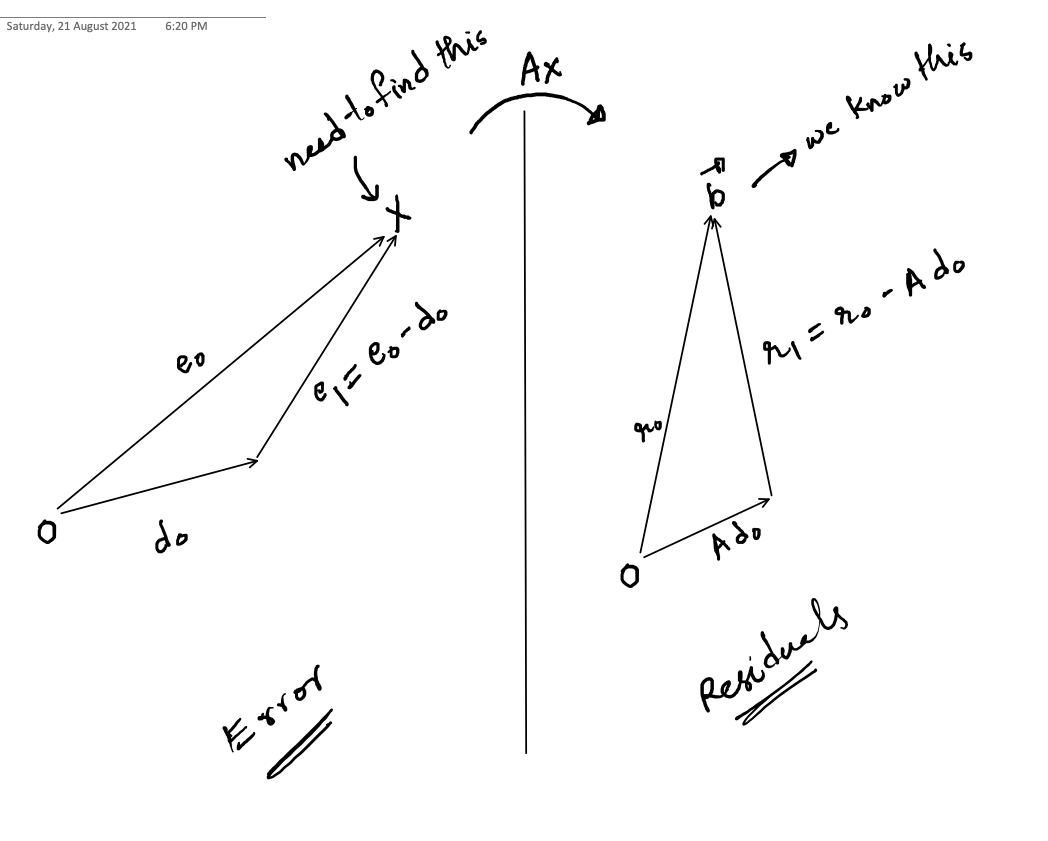 Saturday, 21 August 2021 6:20 PM
need to find this
x
e0
e1 = e0 - d0
0
d0
Error
Ax
b
we know this
r0
r1 = r0 - Ad0
0
Ad0
Residuals